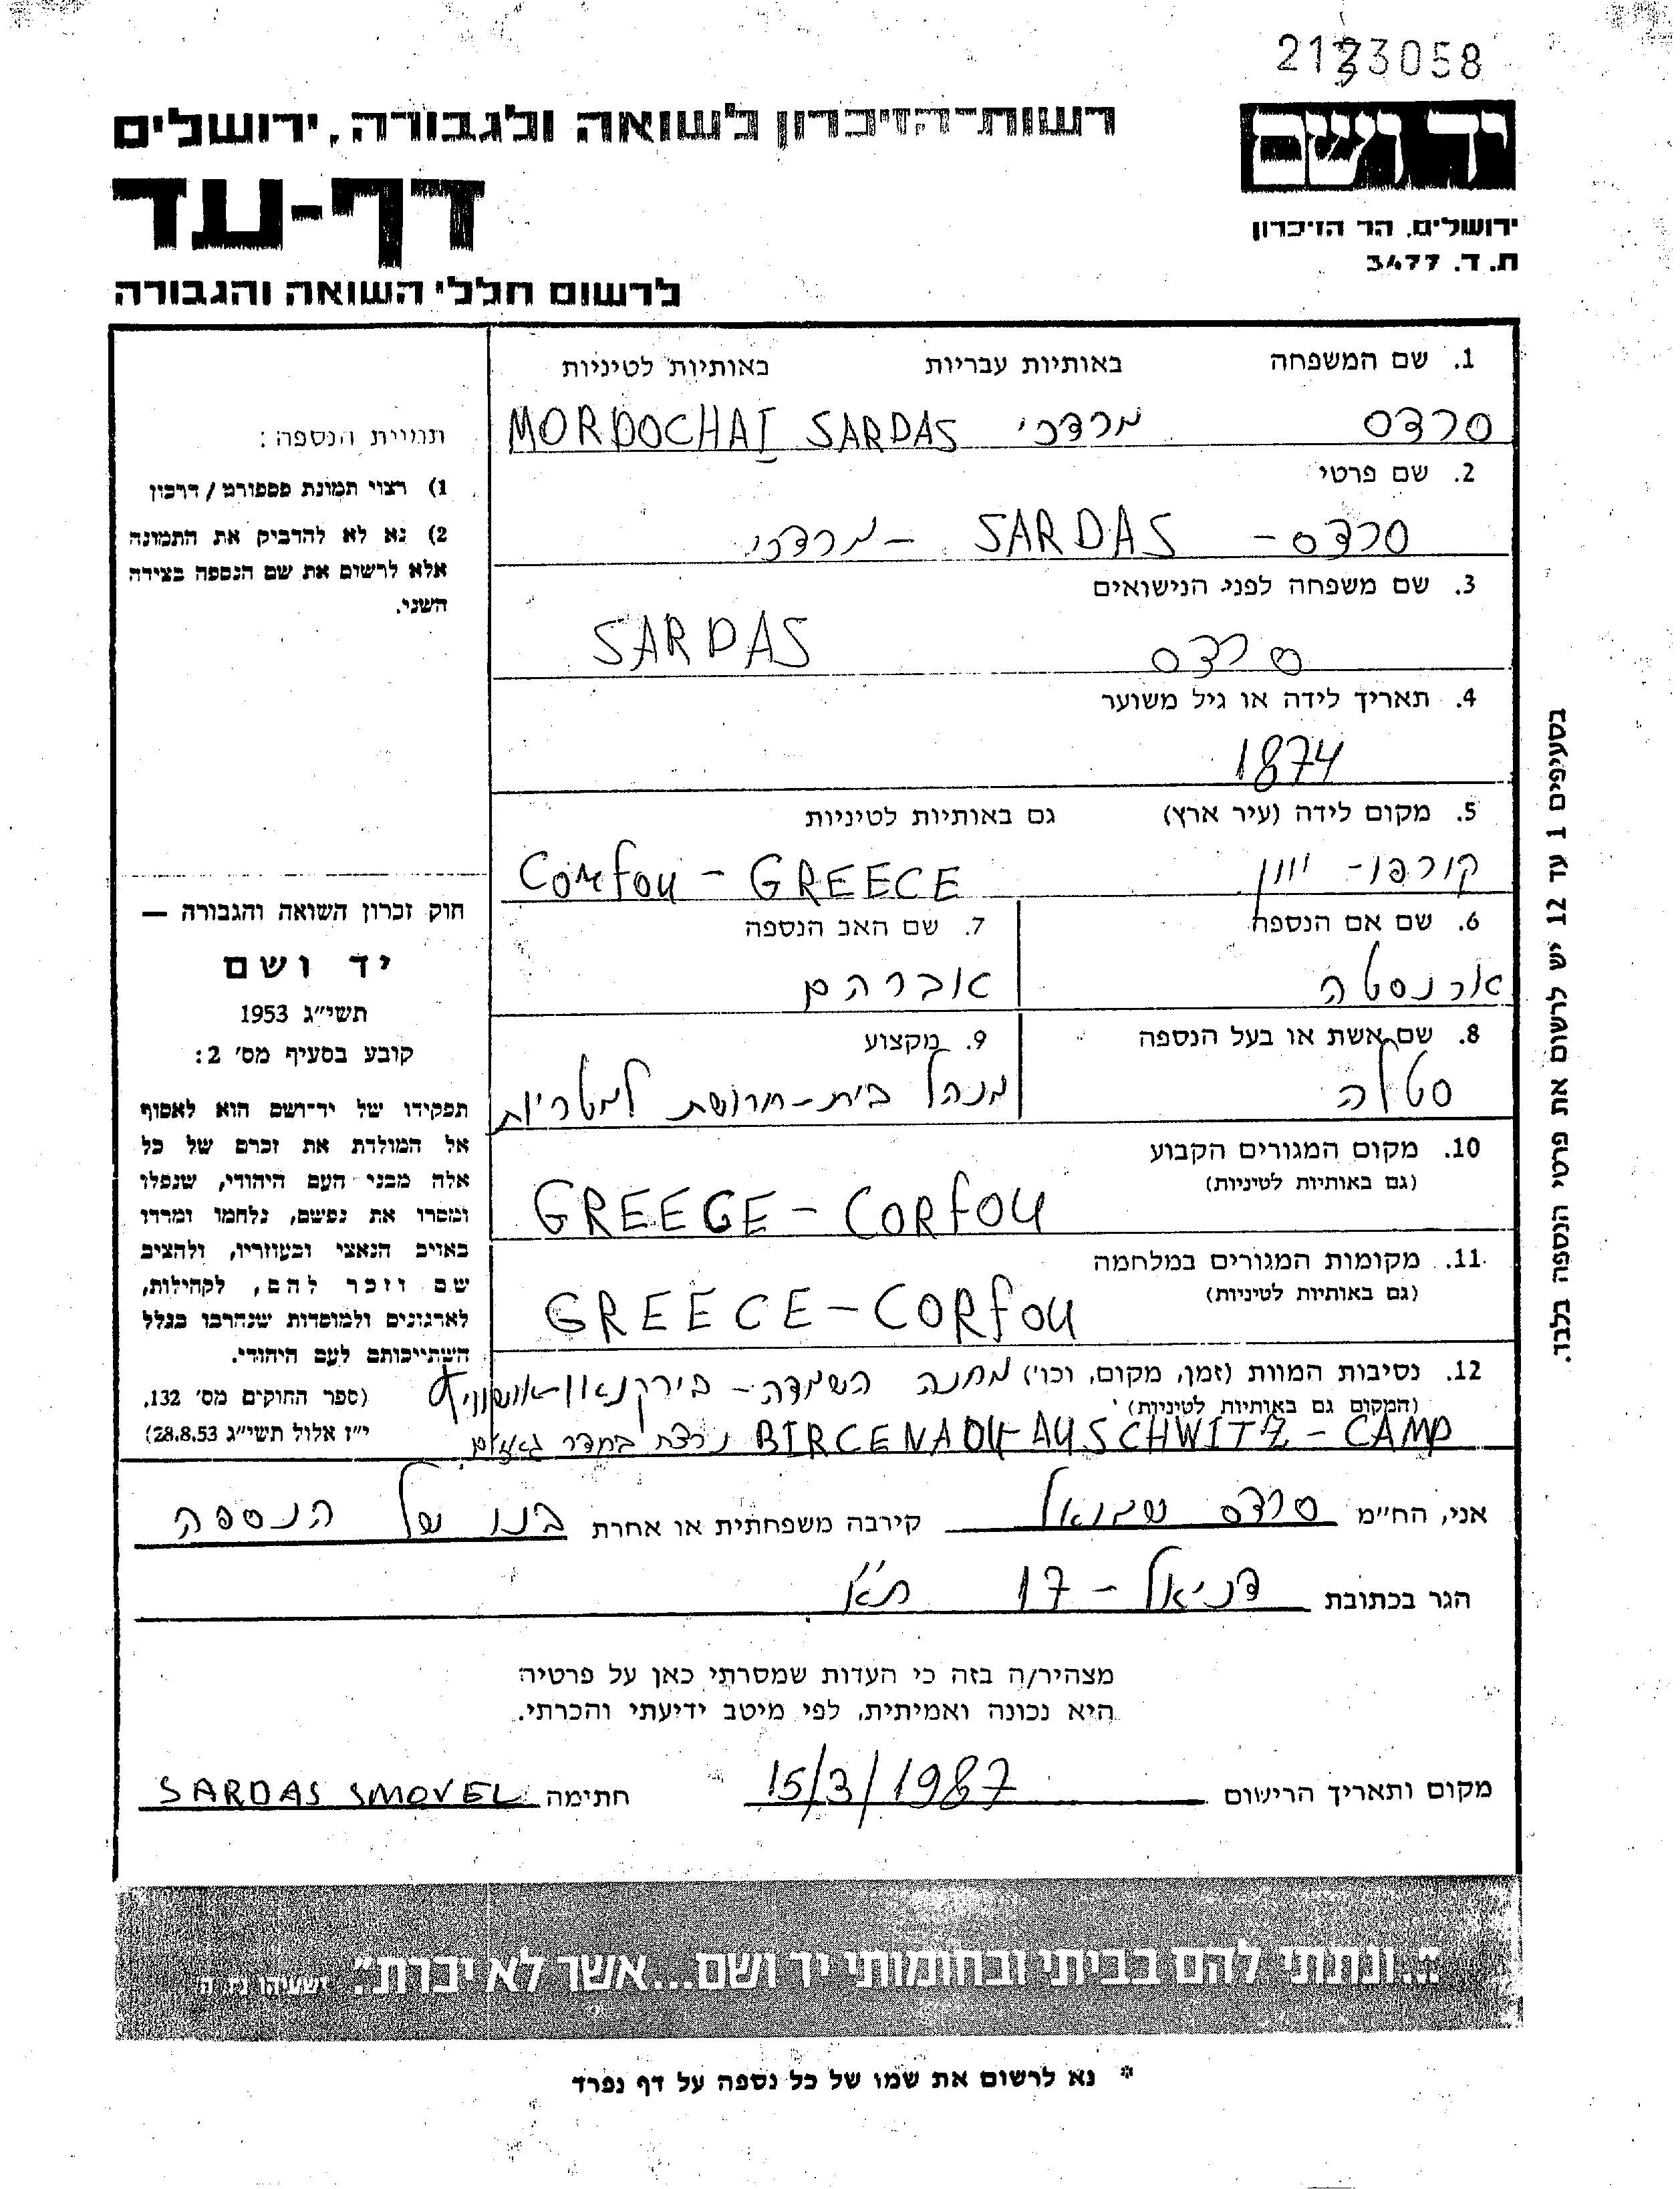 2123058
רשות-הזיכרון לשואה ולגבורה, ירושלים
יד ושם
דף-עד
ירושלים, הר הזיכרון
ת. ד. 3477
לרשום חללי השואה והגבורה
1. שם המשפחה באותיות עבריות באותיות לטיניות
סרדס מרדכי MORDOCHAI SARDAS
2. שם פרטי
סרדס – SARDAS – מרדכי
3. שם משפחה לפני הנישואים
סרדס SARDAS
4. תאריך לידה או גיל משוער
1874
5. מקום לידה (עיר ארץ) גם באותיות לטיניות
קורפו - יוון Corfou - GREECE
6. שם אם הנספה
ארנסטה
7. שם האב הנספה
אברהם
8. שם אשת או בעל הנספה
סטלה
9. מקצוע
מנהל בית-חרושת למטריות
10. מקום המגורים הקבוע
(גם באותיות לטיניות)
GREEGE - CORFOU
11. מקומות המגורים במלחמה
(גם באותיות לטיניות)
GREECE - CORFOU
12. נסיבות המוות (זמן, מקום, וכו') מחנה השמדה - בירקנאו-אושוויץ
(המקום גם באותיות לטיניות)
BIRCENAOU-AUSCHWITZ - CAMP נרצח בחדר גאזים.
תמויית הנספה:
1) רצוי תמונת פספורט / דרכון
2) נא לא להדביק את התמונה
אלא לרשום את שם הנספה בצידה
השני.
חוק זכרון השואה והגבורה —
יד ושם
תשי"ג 1953
קובע בסעיף מס' 2:
תפקידו של יד-ושם הוא לאסוף
אל המולדת את זכרם של כל
אלה מבני העם היהודי, שנפלו
ומסרו את נפשם, נלחמו ומרדו
באויב הנאצי ובעוזריו, ולהציב
שם וזכר להם, לקהילות,
לארגונים ולמוסדות שנחרבו בגלל
השתייכותם לעם היהודי.
(ספר החוקים מס' 132,
י"ז אלול תשי"ג 28.8.53)
בסעיפים 1 עד 12 יש לרשום את פרטי הנספה בלבד.
אני, הח"מ סרדס שמואל קירבה משפחתית או אחרת בנו של הנספה
הגר בכתובת דניאל - 17 ת"א
מצהיר/ה בזה כי העדות שמסרתי כאן על פרטיה
היא נכונה ואמיתית, לפי מיטב ידיעתי והכרתי.
מקום ותאריך הרישום 15/3/1987 חתימה SARDAS SMOVEL
"...ונתתי להם בביתי ובחומותי יד ושם...אשר לא יכרת". ישעיהו נו, ה
* נא לרשום את שמו של כל נספה על דף נפרד